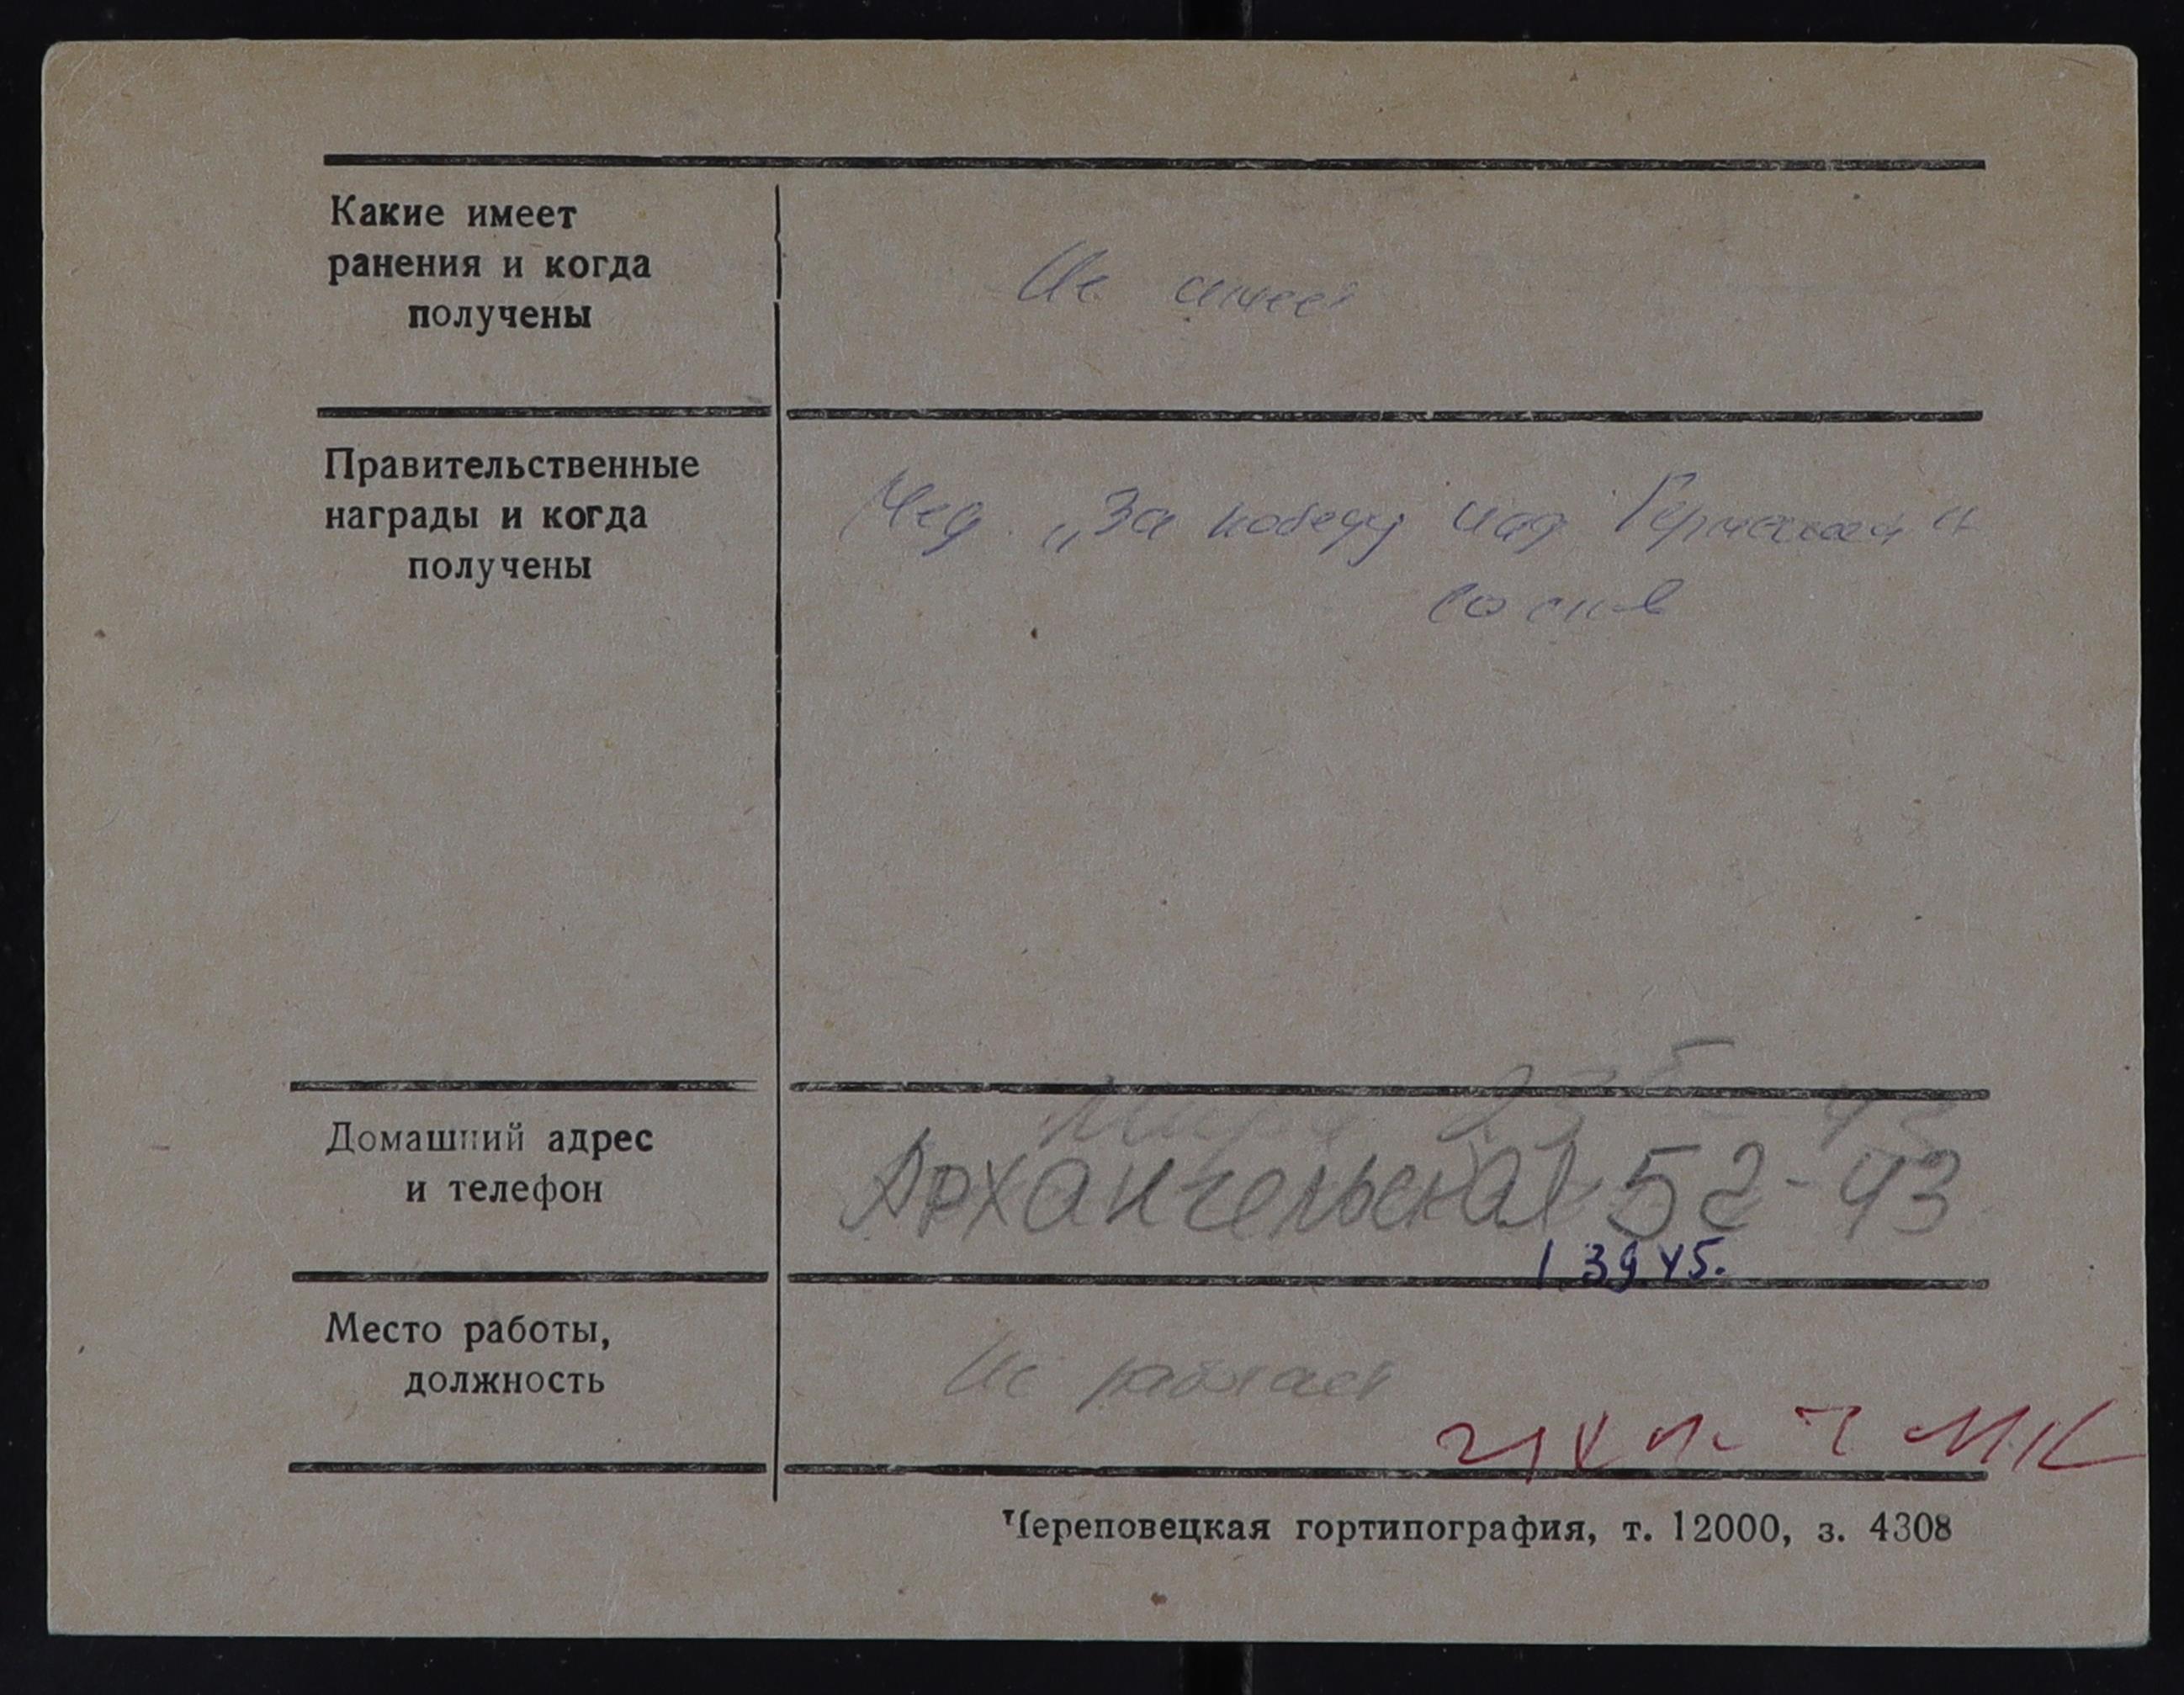 Какие имеет
ранения и когда
получены
Не имеет
Правительственные
награды и когда
получены
Мед. „За победу над Германией"
Домашний адрес
и телефон
Мира
Архангельская 52-43
13945.
Место работы,
должность
Не работает
Череповецкая гортипография, т. 12000, з. 4308